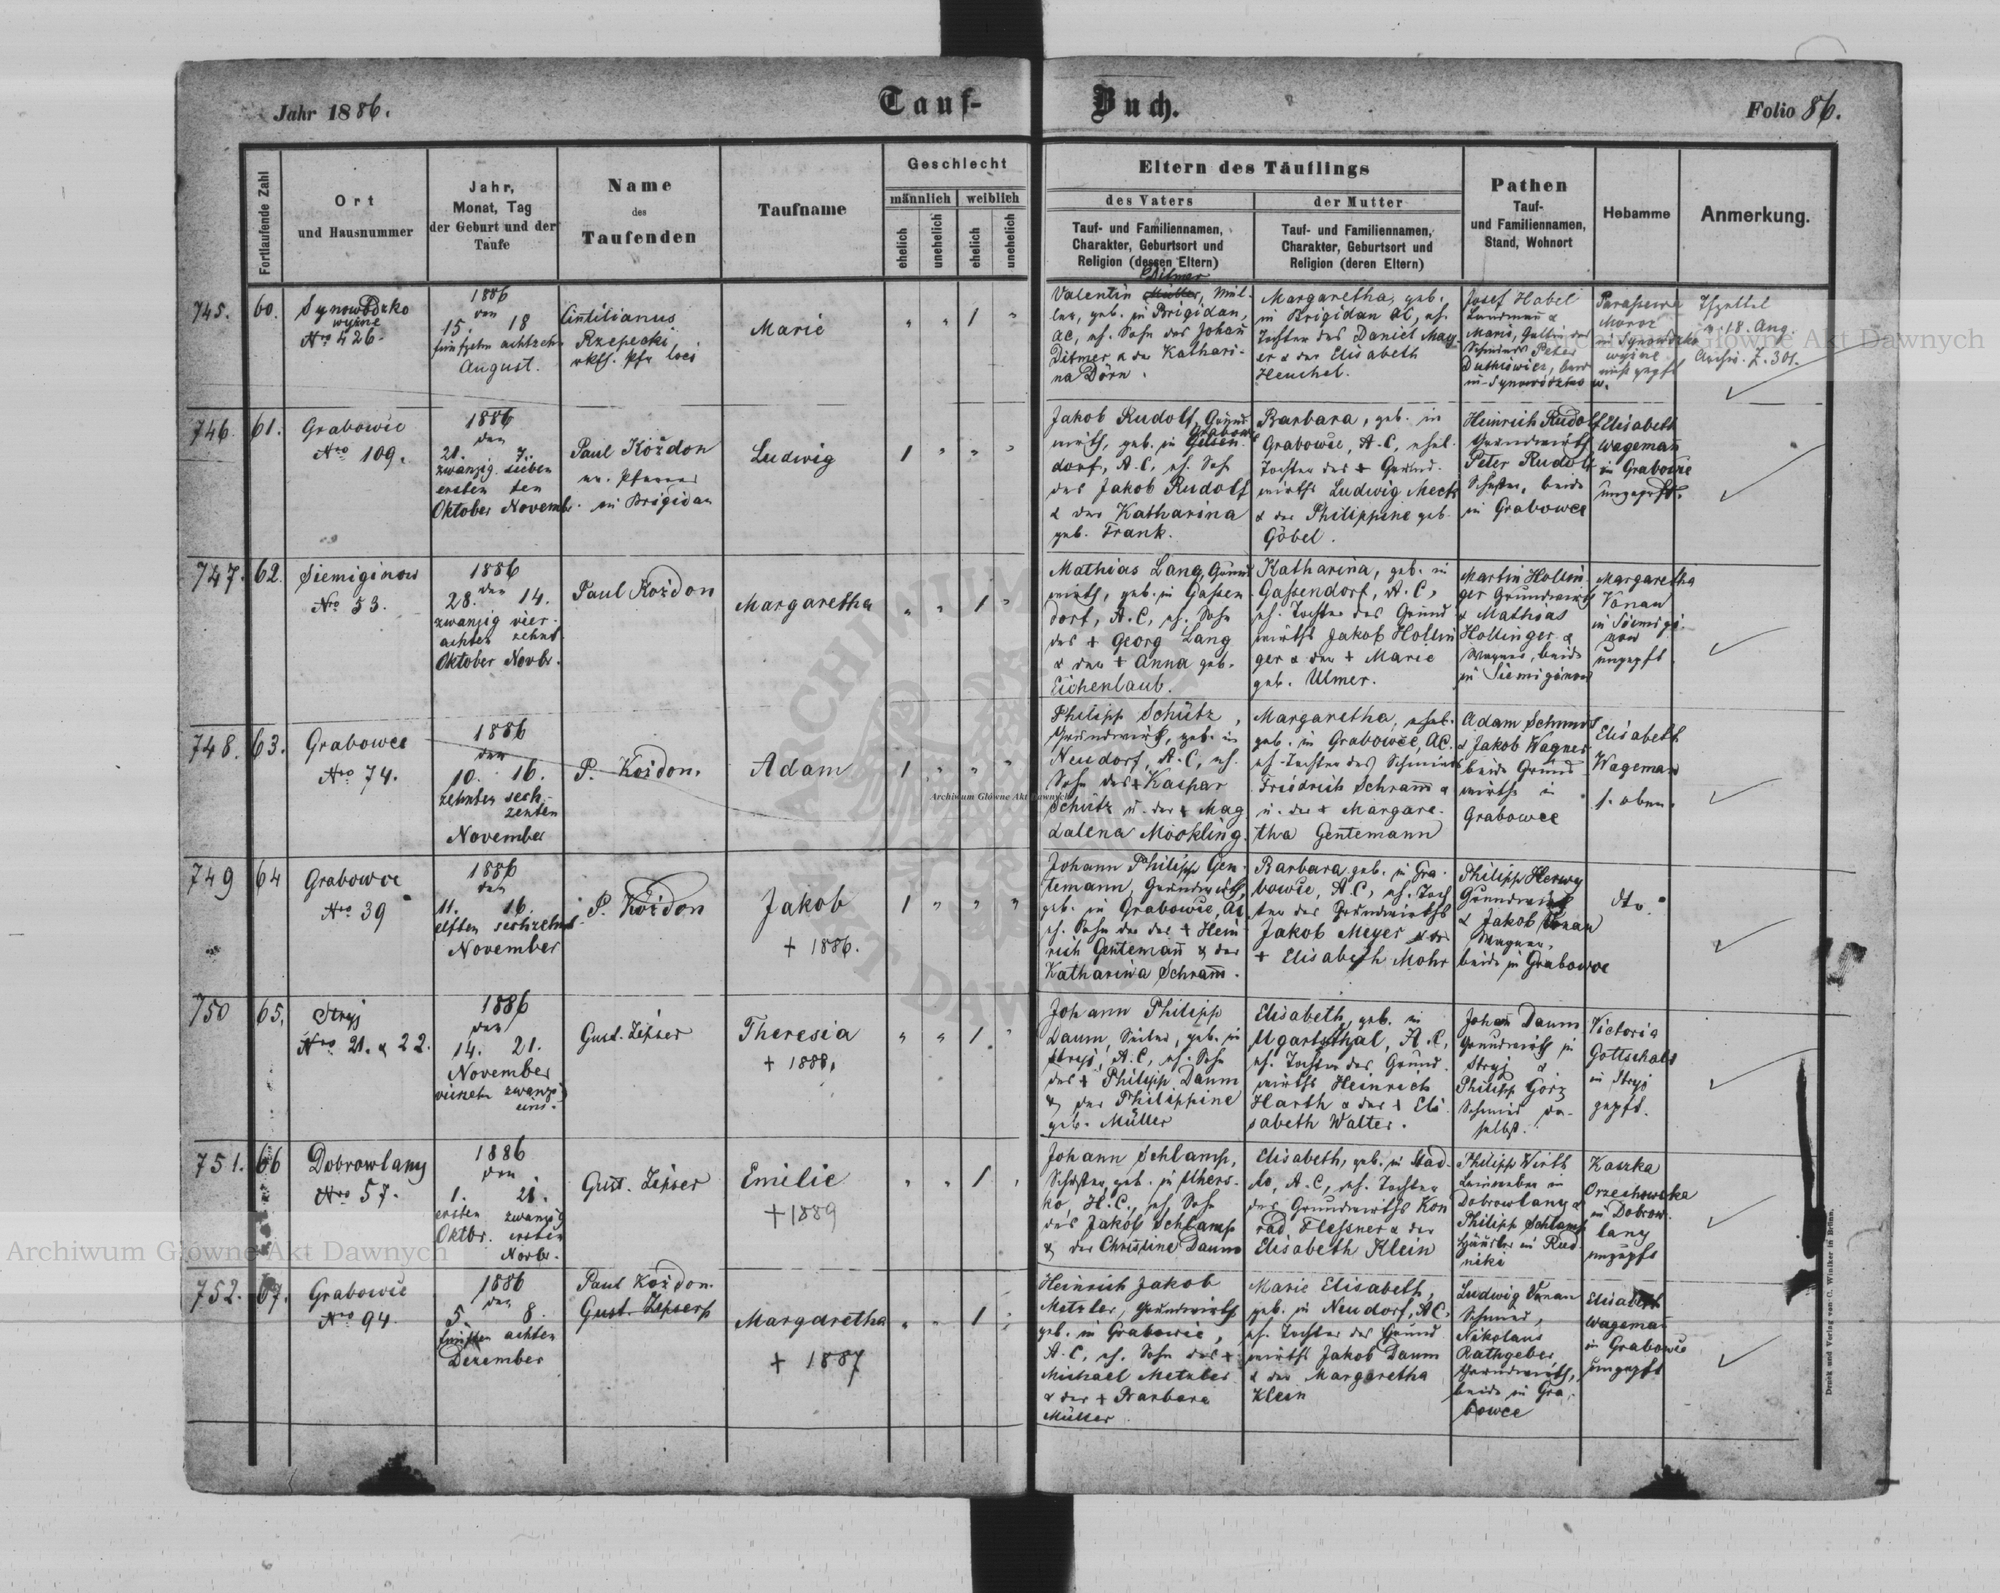 Jahr 1886.
Tauf-
Buch.
Folio 86.
Fortlaufende Zahl
Ort
und Hausnummer
Jahr,
Monat, Tag
der Geburt und der
Taufe
Name
des
Taufenden
Taufname
Geschlecht
männlich
weiblich
ehelich
unehelich
ehelich
unehelich
Eltern des Täuflings
des Vaters
der Mutter
Tauf- und Familiennamen,
Charakter, Geburtsort und
Religion (dessen Eltern)
Tauf- und Familiennamen,
Charakter, Geburtsort und
Religion (deren Eltern)
Pathen
Tauf-
und Familiennamen,
Stand, Wohnort
Hebamme
Anmerkung.
745. 60.
Synowódzko
wyżne
Nro 426.
1886
den
15. 18
fünfzehn achtzehn
August.
Rzepecki
Marie
1
Ditmer
Valentin Müller, Mül-
ler, geb. in Brigidau,
AC, eh. Sohn des Johann
Ditmer & der Kathari-
na Dörn.
Margaretha, geb.
in Brigidau AC, eh.
Tochter des Daniel May-
er & der Elisabeth
Heuchel.
Josef Habel
Landmann &
Schmied Peter
18. Aug.
Z. 301.
746. 61.
Grabowce
Nro 109.
1886
den
21. 7.
zwanzig sieben
ersten ten
Oktober Novemb.
Paul Kożdon
ev. Pfarrer
in Brigidau
Ludwig
1
Jakob Rudolf, Grund-
wirth, geb. in
dorf, A.C, eh. Sohn
des Jakob Rudolf
& der Katharina
geb. Frank.
Barbara, geb. in
Grabowce, A.C, ehel.
Tochter des + Grund-
wirths Ludwig Meck
& der Philippine geb.
Göbel.
Heinrich Rudolf
Grundwirth
Peter Rudolf
Schuster, beide
in Grabowce
Elisabeth
Wagemann
in Grabowce
ungeprft.
747. 62.
Siemiginow
Nro 53.
1886
den
28. 14.
zwanzig vier-
achten zehnt.
Oktober Novbr.
Paul Kożdon
Margaretha
1
Mathias Lang, Grund-
wirth, geb. in Gassen-
dorf, A.C, eh. Sohn
des + Georg Lang
& der + Anna geb.
Eichenlaub.
Katharina, geb. in
Gassendorf, A.C,
eh. Tochter des Grund-
wirths Jakob Hollin-
ger & der + Marie
geb. Ulmer.
Martin Hollin-
ger Grundwirth
& Mathias
Hollinger &
Wagner, beide
in Siemiginow
Margaretha
Vonau
in Siemigi-
now
ungeprft.
748. 63.
Grabowce
Nro 74.
1886
den
10. 16.
zehnten sech-
zehnten
November
P. Kożdon.
Adam
1
Philipp Schütz,
Grundwirth, geb. in
Neudorf, A.C, eh.
Sohn des + Kaspar
Schütz u. der + Mag-
dalena Möckling.
Margaretha, ehel.
geb. in Grabowce, AC.
eh. Tochter des Schmieds
Friedrich Schramm
u. der + Margare-
tha Gentemann
Adam Schmidt
& Jakob Wagner
beide Grund-
wirthe in
Grabowce
Elisabeth
Wageman
s. oben.
749 64
Grabowce
Nro 39
1886
den
11. 16.
elften sechzehnt.
November
P. Kożdon
Jakob
+ 1886.
1
Johann Philipp Gen-
temann, Grundwirth,
geb. in Grabowce, AC
eh. Sohn des + Hein-
rich Gentemann & der
Katharina Schramm.
Barbara geb. in Gra-
bowce, A.C, eh. Toch-
ter des Grundwirths
Jakob Meyer & der
+ Elisabeth Mohr
Philipp Herwy
Grundwirth
& Jakob Vonau
Wagner,
beide in Grabowce
dto.
750 65.
Stryj
Nro 21. & 22.
1886
den
14. 21.
November
vierzehn zwanzig
eins.
Gust. Zipser
Theresia
+ 1888.
1
Johann Philipp
Daum, Seiler, geb. in
Stryj, A.C, eh. Sohn
des + Philipp Daum
& der Philippine
geb. Müller
Elisabeth, geb. in
Ugartsthal, A.C,
eh. Tochter des Grund-
wirths Heinrich
Harth & der + Eli-
sabeth Walter.
Johann Daum
Grundwirth in
Stryj &
Philipp Görz
Schmied da-
selbst.
Victoria
Gottschalk
in Stryj
geprft.
751. 66
Dobrowlany
Nro 57.
1886
den
1. 21.
ersten zwanzig
Oktbr. ersten
Novbr.
Gust. Zipser
Emilie
+ 1889
1
Johann Schlamp,
Schuster, geb. in Uhers-
ko, H.C., eh. Sohn
des Jakob Schlamp
& der Christine Daum
Elisabeth, geb. in
A.C, eh. Tochter
des Grundwirths Kon-
rad Flessner & der
Elisabeth Klein
Philipp Wirth
Leinweber in
Dobrowlany &
Philipp Schlamp
Häusler in Rud-
niki
Kaszka
Orzechowska
in Dobrow-
lany
ungeprft
752. 67.
Grabowce
Nro 94.
1886
den
5. 8.
fünften achten
Dezember
Paul Kożdon.
Gust. Zipser
Margaretha
+ 1887
1
Heinrich Jakob
Metzler, Grundwirth
geb. in Grabowce,
A.C, eh. Sohn des +
Michael Metzler
& der + Barbara
Müller
Marie Elisabeth,
geb. in Neudorf, AC,
eh. Tochter des Grund-
wirths Jakob Daum
& der Margaretha
Klein
Ludwig Vonau
Schmied,
Nikolaus
Rathgeber,
Grundwirth,
beide in Gra-
bowce
Elisabeth
Wageman
in Grabowce
ungeprft
Druck und Verlag von C. Winiker in Brünn.
Archiwum Główne Akt Dawnych
Archiwum Główne Akt Dawnych
Archiwum Główne Akt Dawnych